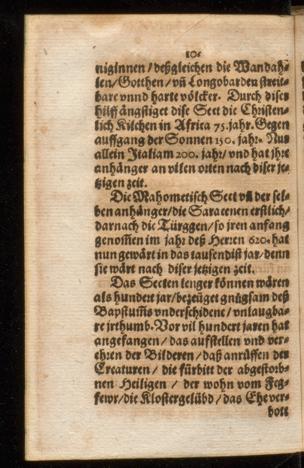 10.
niginnen / deßgleichen die Wandah-
len/Gotthen/ vñ Longobarden streit-
bare vnnd harte völcker. Durch diser
hilff ängstiget dise Sect die Christen-
lich Kilchen in Africa 75. jahr. Gegen
auffgang der Sonnen 150. jahr. Nun
allein Italiam 200. jahr/ vnd hat jhre
anhänger an vilen orten nach diser je-
tzigen zeit.
Die Mahometisch Sect vñ der sel-
ben anhänger/die Saracenen erstlich/
darnach die Türggen/so jren anfang
genom̃en im jahr deß Herren 620. hat
nun gewärt in das tausendist jar/denn
sie wärt nach diser jetzigen zeit.
Das Secten lenger können wären
als hundert jar/bezeüget gnůgsam deß
Bapstum̃s vnderschidene / vnlaugba-
re jrthumb. Vor vil hundert jaren hat
angefangen / das auffstellen vnd ver-
ehren der Bilderen / daß anrüffen der
Creaturen / die fürbitt der abgestorb-
nen Heiligen / der wohn vom Feg-
fewr/die Klostergelübd / das Ehever-
bott